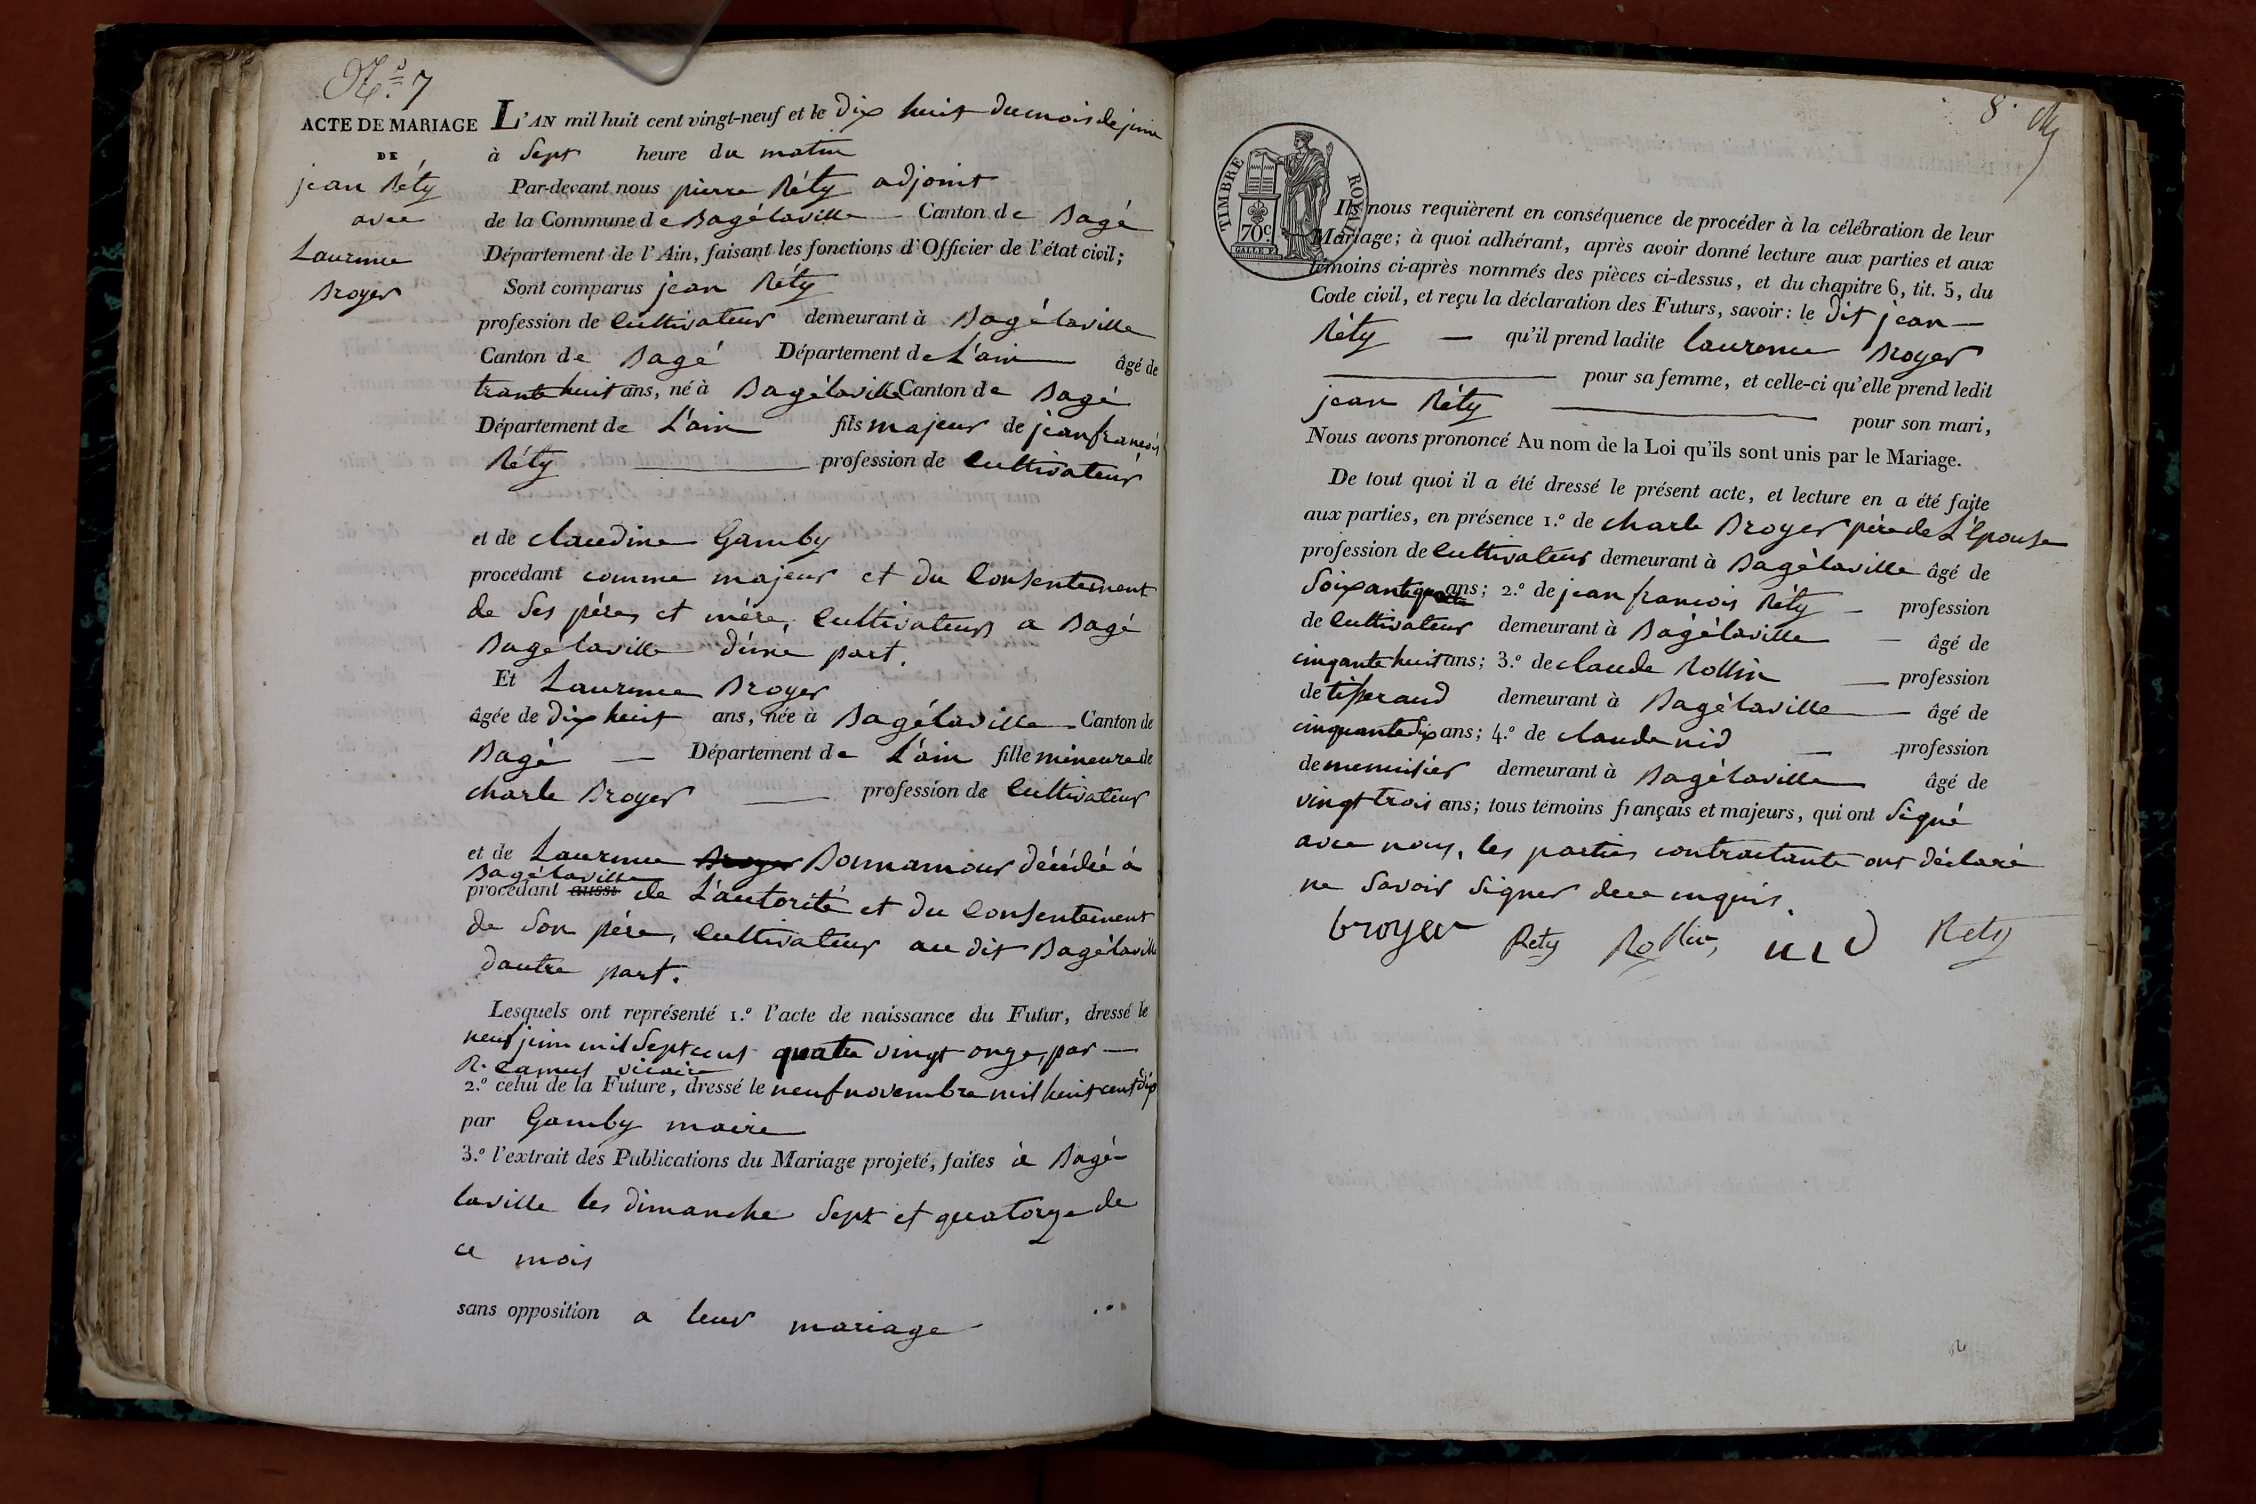 N.° 7
ACTE DE MARIAGE
DE
jean Réty
avec
Laurence
Broyer
L'AN mil huit cent vingt-neuf et le dix huit du mois de juin
à Sept heure du matin
Par-devant nous pierre Réty adjoint
de la Commune de Bagélaville Canton de Bagé
Département de l'Ain, faisant les fonctions d'Officier de l'état civil;
Sont comparus jean Réty
profession de Cultivateur demeurant à Bagélaville
Canton de Bagé Département de L'ain âgé de
trante huit ans, né à Bagélaville Canton de Bagé
Département de L'ain fils majeur de jean francois
Réty profession de Cultivateur
et de claudine Gamby
procédant comme majeur et du Consentement
de Ses péres et mére, Cultivateurs a Bagé
Bagélaville d'une part.
Et Laurence Broyer
âgée de dix huit ans, née à Bagélaville Canton de
Bagé Département de L'ain fille mineure de
charle Broyer profession de Cultivateur
et de Laurence Broyer Bonnamour décédée à
Bagélaville
procédant aussi de L'autorité et du Consentement
de Son pére, Cultivateur au dit Bagélaville
dautre part.
Lesquels ont représenté 1.° l'acte de naissance du Futur, dressé le
neuf juin mil Sept cent quatre vingt onze, par
R. Camus vicaire
2.° celui de la Future, dressé le neuf novembre mil huit cent dix
par Gamby maire
3.° l'extrait des Publications du Mariage projeté, faites à Bagé
laville les dimanche Sept et quatorze de
ce mois
sans opposition a leur mariage
8.
TIMBRE ROYAL
70c
GALLE F.
Ils nous requièrent en conséquence de procéder à la célébration de leur
Mariage; à quoi adhérant, après avoir donné lecture aux parties et aux
témoins ci-après nommés des pièces ci-dessus, et du chapitre 6, tit. 5, du
Code civil, et reçu la déclaration des Futurs, savoir: le dit jean
Réty qu'il prend ladite laurence Broyer
pour sa femme, et celle-ci qu'elle prend ledit
jean Réty pour son mari,
Nous avons prononcé Au nom de la Loi qu'ils sont unis par le Mariage.
De tout quoi il a été dressé le présent acte, et lecture en a été faite
aux parties, en présence 1.° de charle Broyer pére de L'épouse
profession de Cultivateur demeurant à Bagélaville âgé de
Soixante quatre ans; 2.° de jean francois Réty profession
de Cultivateur demeurant à Bagélaville âgé de
cinqante huit ans; 3.° de claude Rollin profession
de tisserand demeurant à Bagélaville âgé de
cinquante dix ans; 4.° de claude nid profession
de menuisier demeurant à Bagélaville âgé de
vingt trois ans; tous témoins français et majeurs, qui ont Signé
avec nous, les parties contractante ont déclaré
ne Savoir Signer dece enquis.
broyer Rety Rollin nid Rety